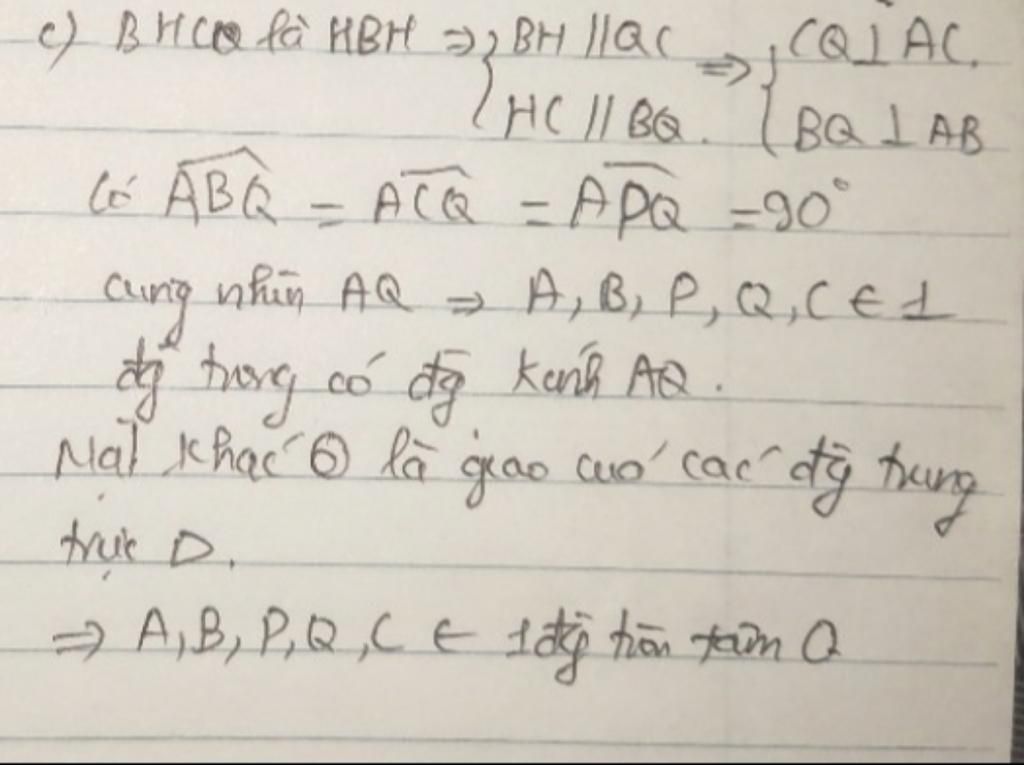 c) BHCQ là HBH => { BH // QC => { CQ ⊥ AC.
HC // BQ. BQ ⊥ AB
Có ABQ = ACQ = APQ = 90°
cùng nhìn AQ => A, B, P, Q, C ∈ 1
đg tròng có đg kính AQ.
Mặt khác O là giao cuả các đg trung
trực D.
=> A, B, P, Q, C ∈ 1 đg tròn tâm O